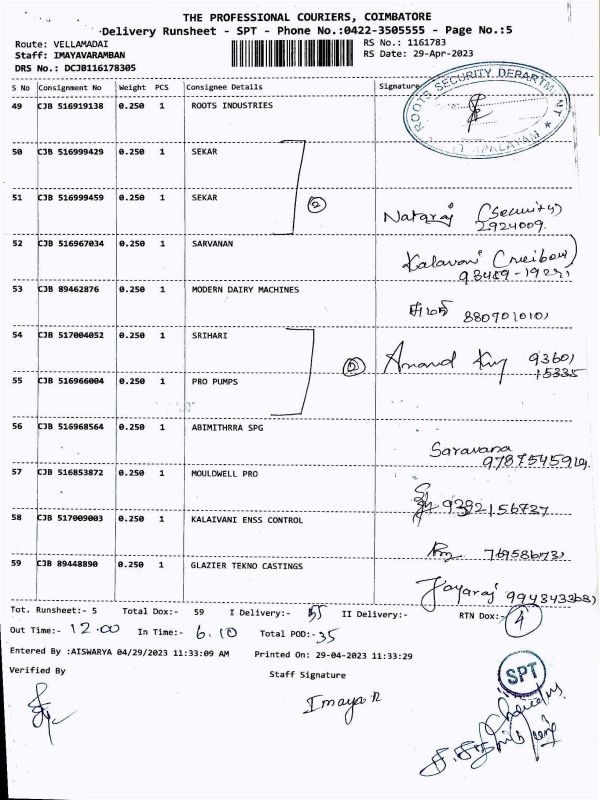 THE PROFESSIONAL COURIERS, COIMBATORE
Delivery Runsheet - SPT - Phone No.:0422-3505555 - Page No.:5
Route: VELLAMADAI
RS No.: 1161783
Staff: IMAYAVARAMBAN
RS Date: 29-Apr-2023
DRS No.: DCJB116178305
S No Consignment No Weight PCS Consignee Details Signature
ROOTS SECURITY DEPARTMENT
49 CJB 516919138 0.250 1 ROOTS INDUSTRIES
50 CJB 516999429 0.250 1 SEKAR
51 CJB 516999459 0.250 1 SEKAR
2
Nataraj (Security)
2924009
52 CJB 516967034 0.250 1 SARVANAN
Kalavani
53 CJB 89462876 0.250 1 MODERN DAIRY MACHINES
8807010101
54 CJB 517004052 0.250 1 SRIHARI
Anand 93601
15335
55 CJB 516966004 0.250 1 PRO PUMPS
56 CJB 516968564 0.250 1 ABIMITHRRA SPG
Saravana
57 CJB 516853872 0.250 1 MOULDWELL PRO
58 CJB 517009003 0.250 1 KALAIVANI ENSS CONTROL
59 CJB 89448890 0.250 1 GLAZIER TEKNO CASTINGS
Jayaraj
Tot. Runsheet:- 5 Total Dox:- 59 I Delivery:- 55 II Delivery:- RTN Dox:- 4
Out Time:- 12.00 In Time:- 6.10 Total POD:- 35
Entered By :AISWARYA 04/29/2023 11:33:09 AM Printed On: 29-04-2023 11:33:29
Verified By
Staff Signature
SPT
Imaya